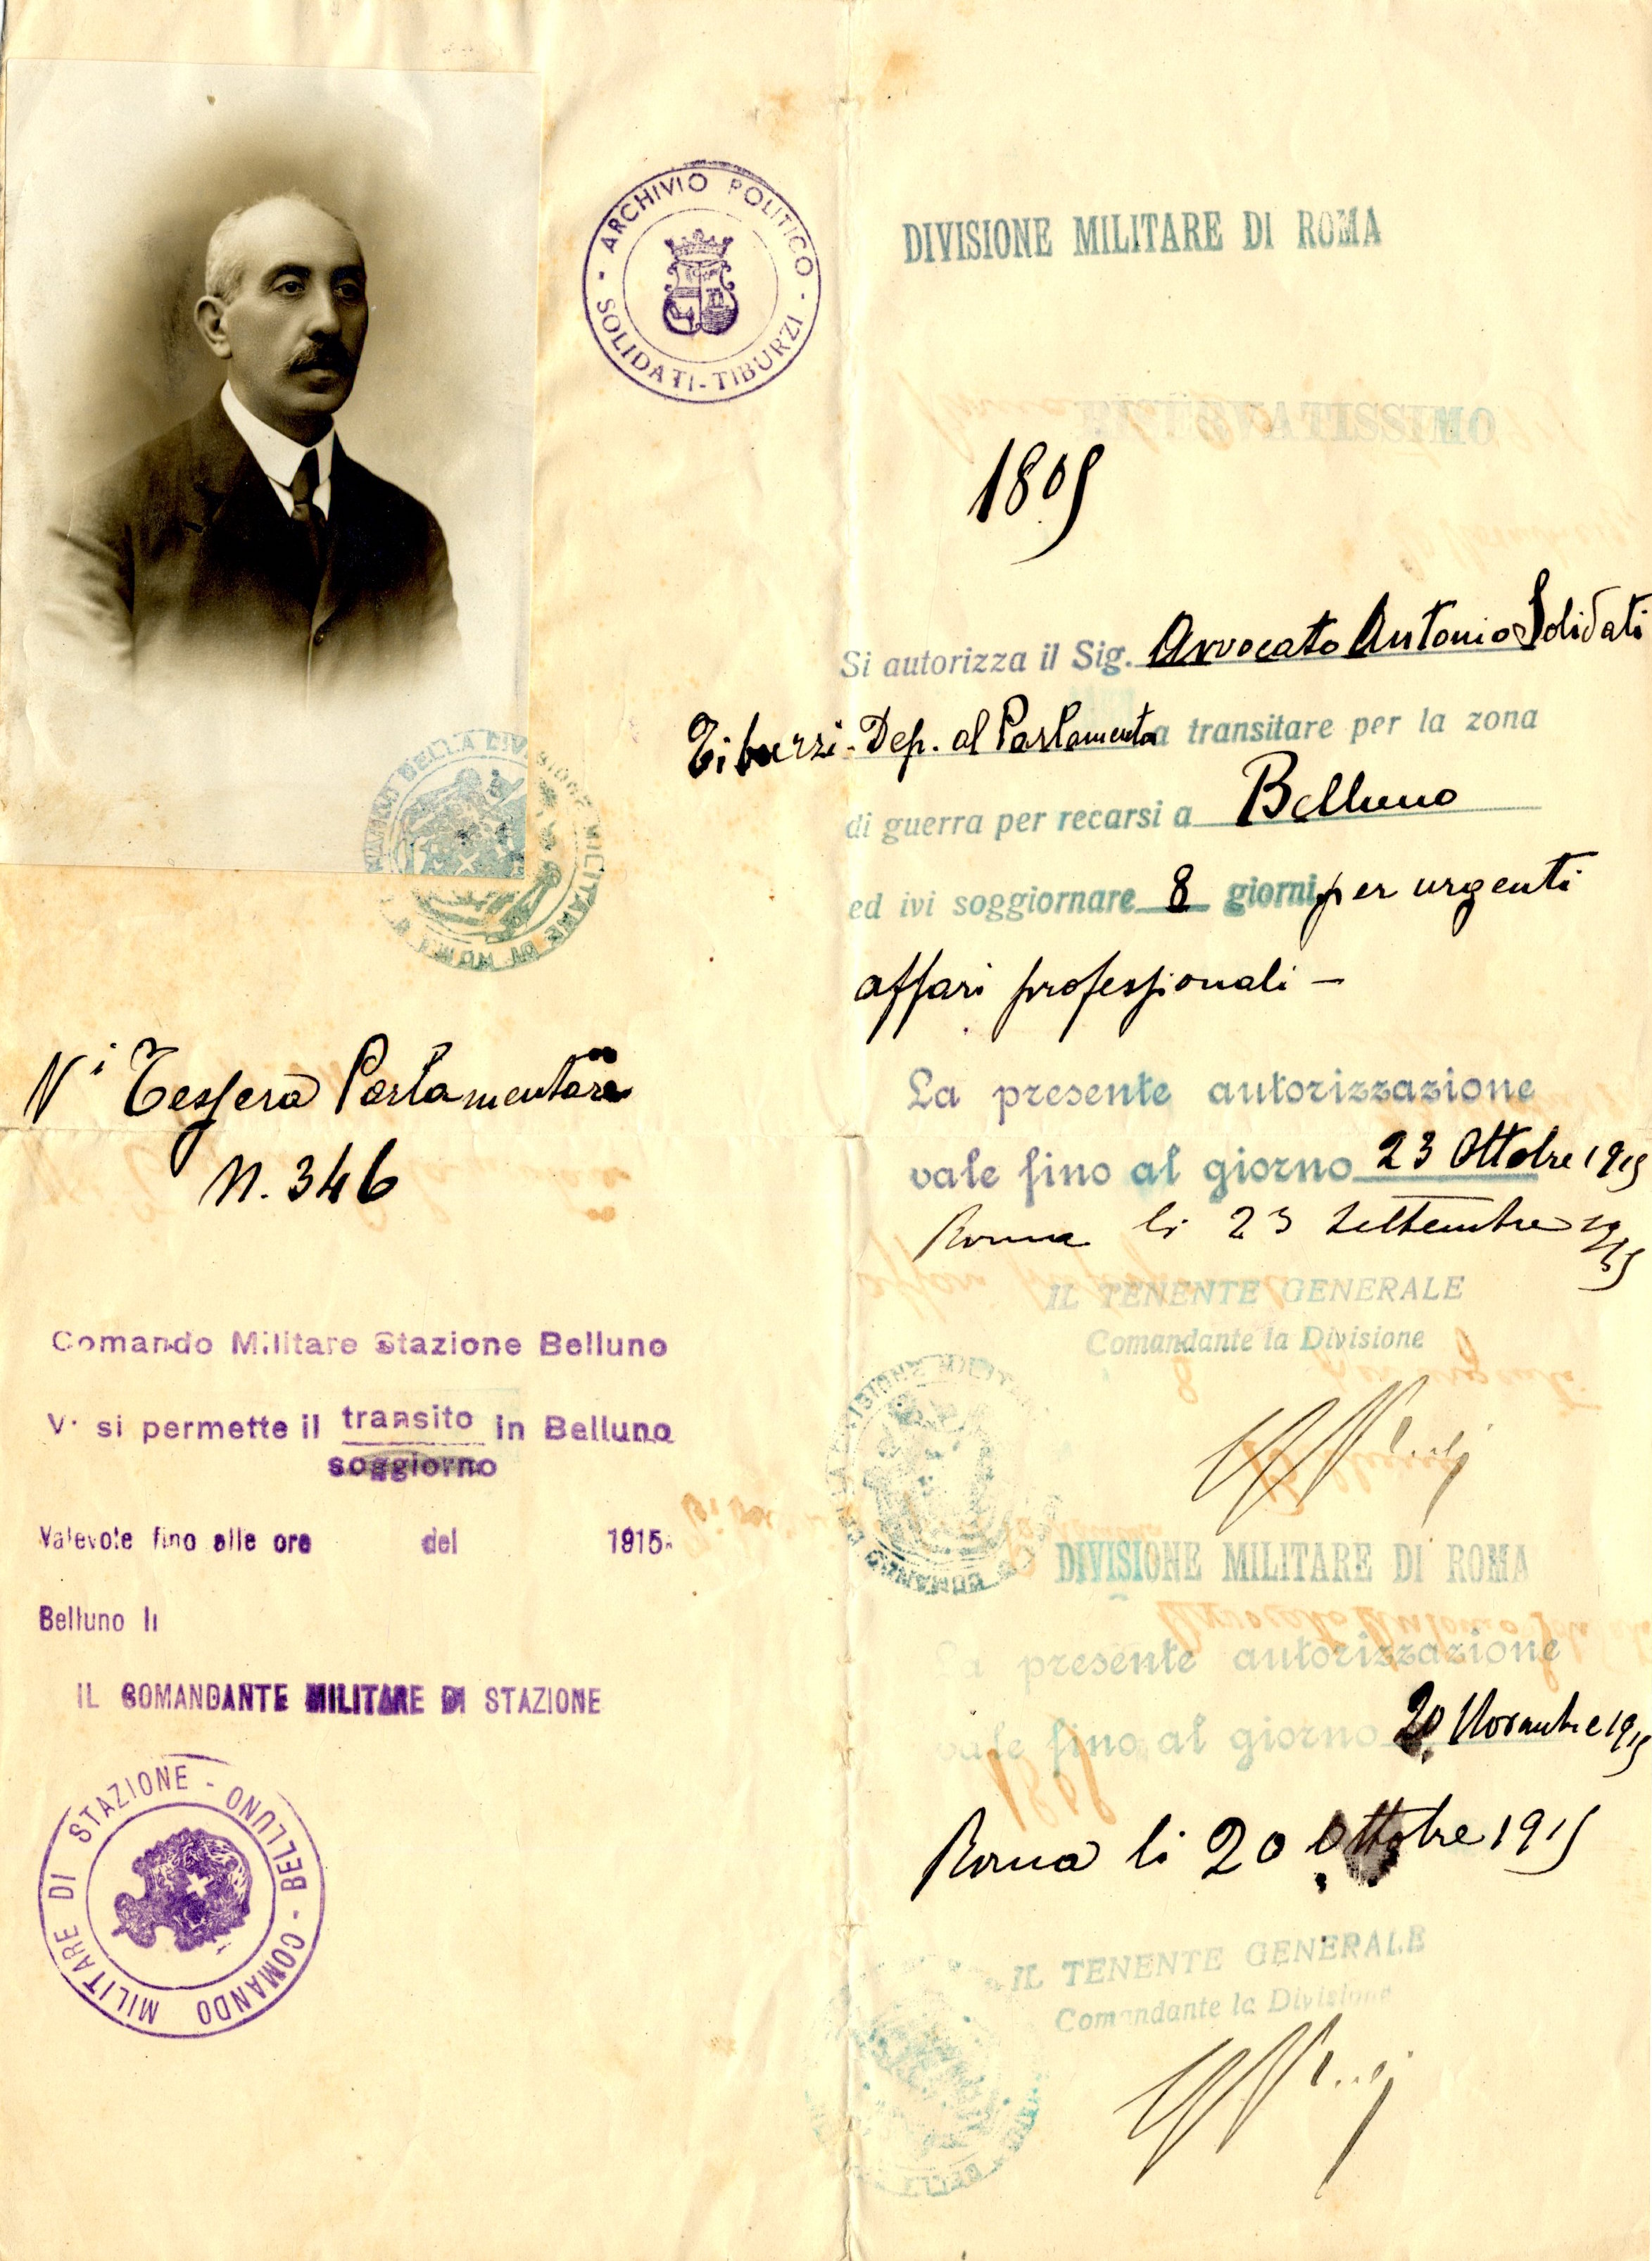 ARCHIVIO POLITICO
- SOLIDATI-TIBURZI -
DIVISIONE MILITARE DI ROMA
RISERVATISSIMO
1805
Si autorizza il Sig. Avvocato Antonio Solidati
Tiburzi - Dep. al Parlamento a transitare per la zona
di guerra per recarsi a Belluno
ed ivi soggiornare 8 giorni per urgenti
affari professionali —
La presente autorizzazione
vale fino al giorno 23 Ottobre 1915
Roma li 23 Settembre 1915
IL TENENTE GENERALE
Comandante la Divisione
DIVISIONE MILITARE DI ROMA
La presente autorizzazione
vale fino al giorno 20 Novembre 1915
Roma li 20 Ottobre 1915
IL TENENTE GENERALE
Comandante la Divisione
DELLA DIVISIONE MILITARE DI ROMA
Vi Tessera Parlamentare
N. 346
Comando Militare Stazione Belluno
V. si permette il transito in Belluno
soggiorno
Valevole fino alle ore del 1915
Belluno li
IL COMANDANTE MILITARE DI STAZIONE
COMANDO MILITARE DI STAZIONE - BELLUNO -